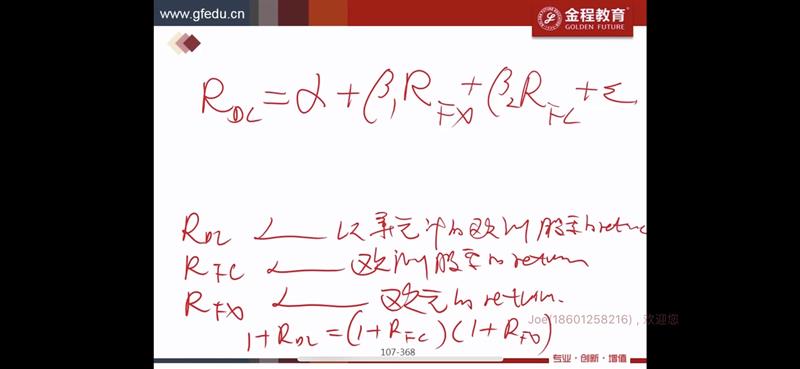 www.gfedu.cn
金程教育
GOLDEN FUTURE
R_DC = α + β₁R_FX + β₂R_FC + ε
R_DC ← 以美元计的欧洲股票的return
R_FC ← 欧洲股票的return
R_FX ← 欧元的return.
1+R_DC = (1+R_FC)(1+R_FX)
Joe(18601258216) , 欢迎您
107-368
专业·创新·增值